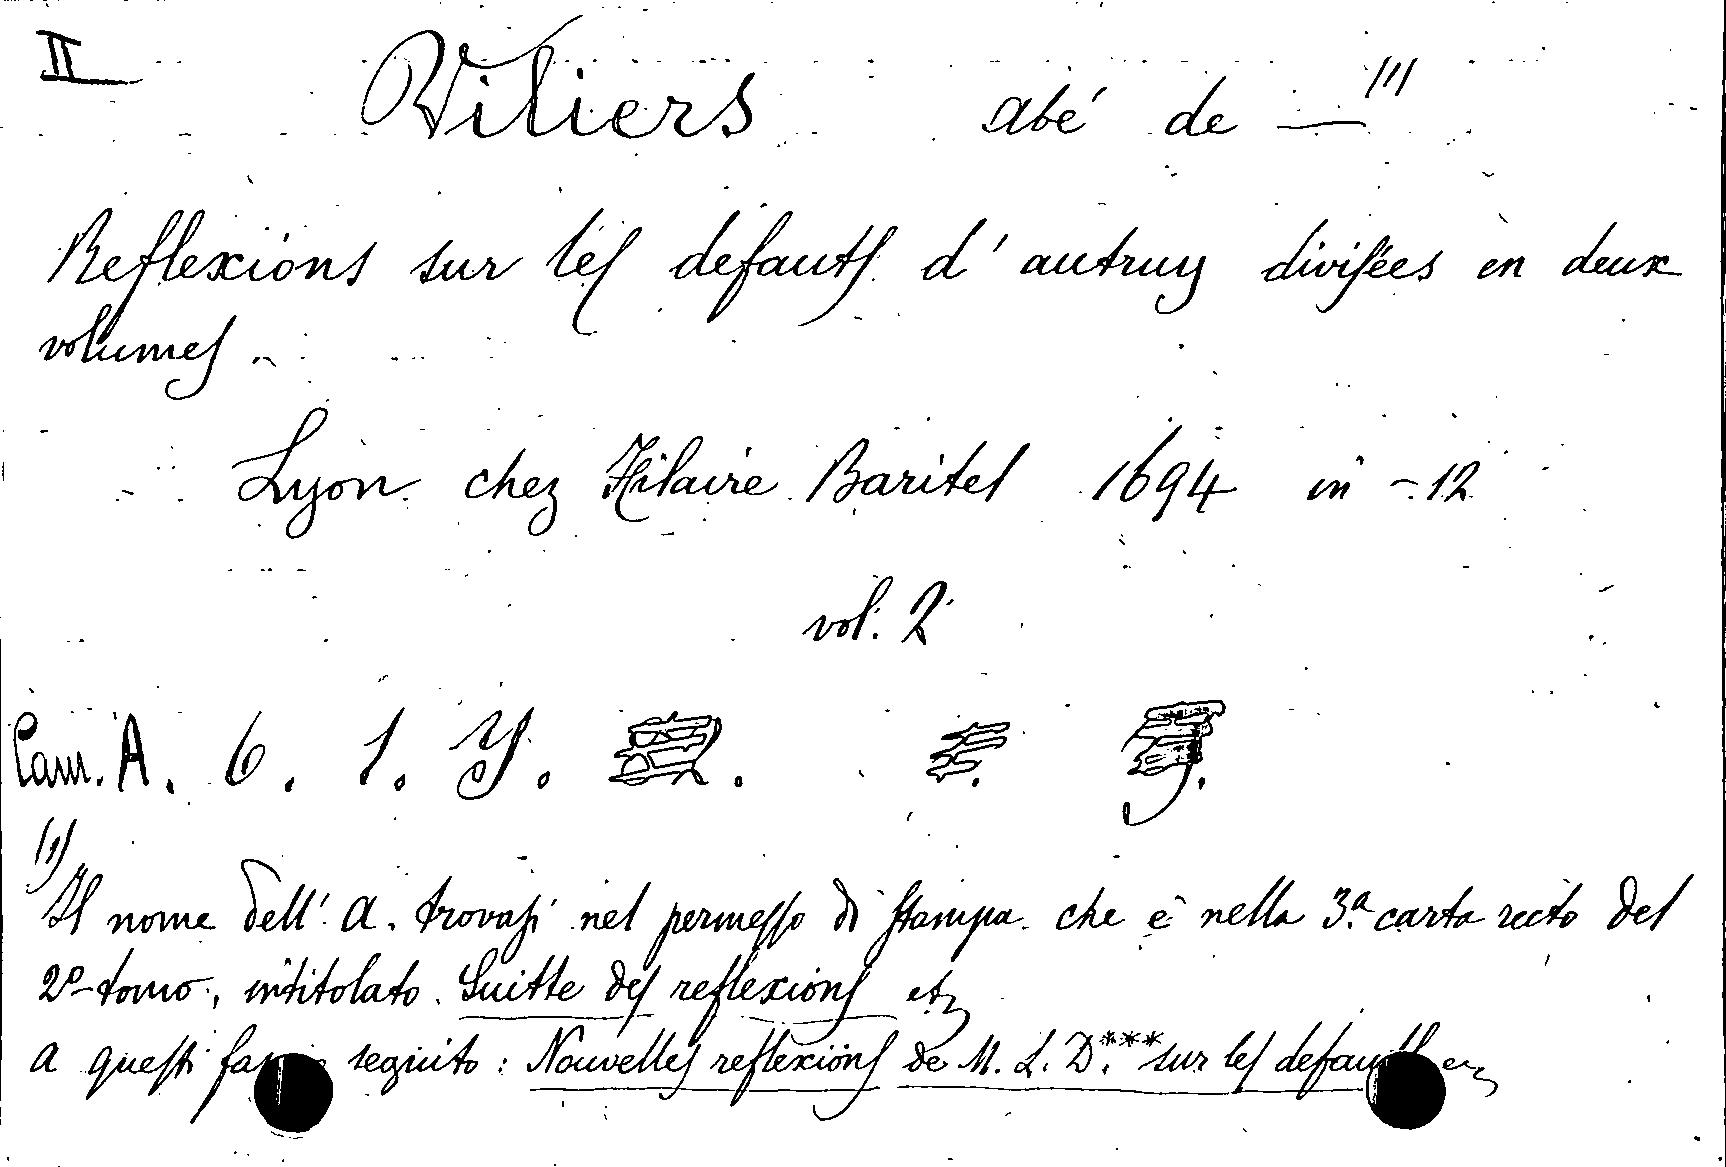 II Viliers abé de — (1)
Reflexions sur les defauts d'autruy divisées en deux
volumes.
Lyon chez Hilaire Baritel 1694 in-12
vol. 2
Cam. A. 6. 1. Y.
(1)
Il nome dell'A. trovasi nel permesso di stampa che è nella 3.ª carta recto del
2º tomo, intitolato. Suitte des reflexions etc
A questi seguito: Nouvelles reflexions de M. L. D.*** sur les defauts etc